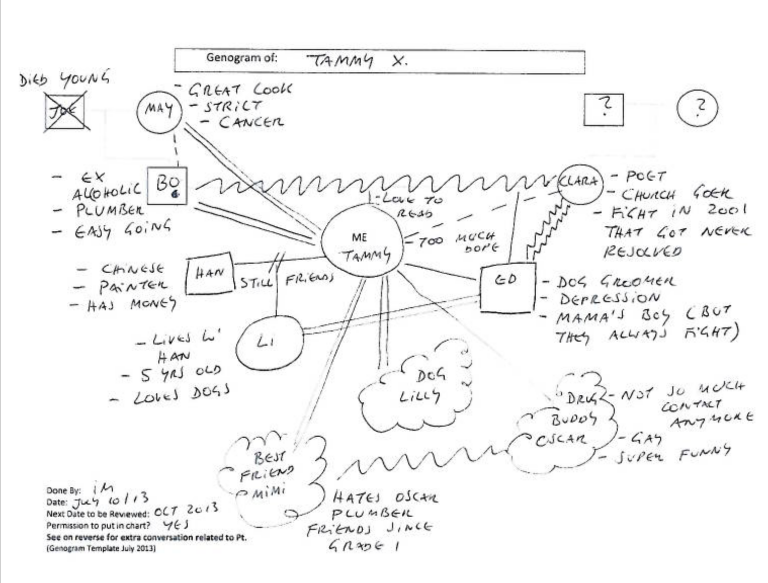 Genogram of: TAMMY X.
DIED YOUNG
JOE
MAY
- GREAT COOK
- STRICT
- CANCER
?
?
- EX
ALCOHOLIC
- PLUMBER
- EASY GOING
BO
CLARA
- POET
- CHURCH GOER
- FIGHT IN 2001
THAT GOT NEVER
RESOLVED
- LOVE TO
READ
ME
TAMMY
- TOO MUCH
DOPE
- CHINESE
- PAINTER
- HAS MONEY
HAN
STILL FRIENDS
ED
- DOG GROOMER
- DEPRESSION
- MAMA'S BOY (BUT
THEY ALWAYS FIGHT)
- LIVES W'
HAN
- 5 YRS OLD
- LOVES DOGS
LI
DOG
LILLY
DRUG
BUDDY
OSCAR
- NOT SO MUCH
CONTACT
ANYMORE
- GAY
- SUPER FUNNY
BEST
FRIEND
MIMI
HATES OSCAR
PLUMBER
FRIENDS SINCE
GRADE 1
Done By: IM
Date: JULY 10/13
Next Date to be Reviewed: OCT 2013
Permission to put in chart? YES
See on reverse for extra conversation related to Pt.
(Genogram Template July 2013)